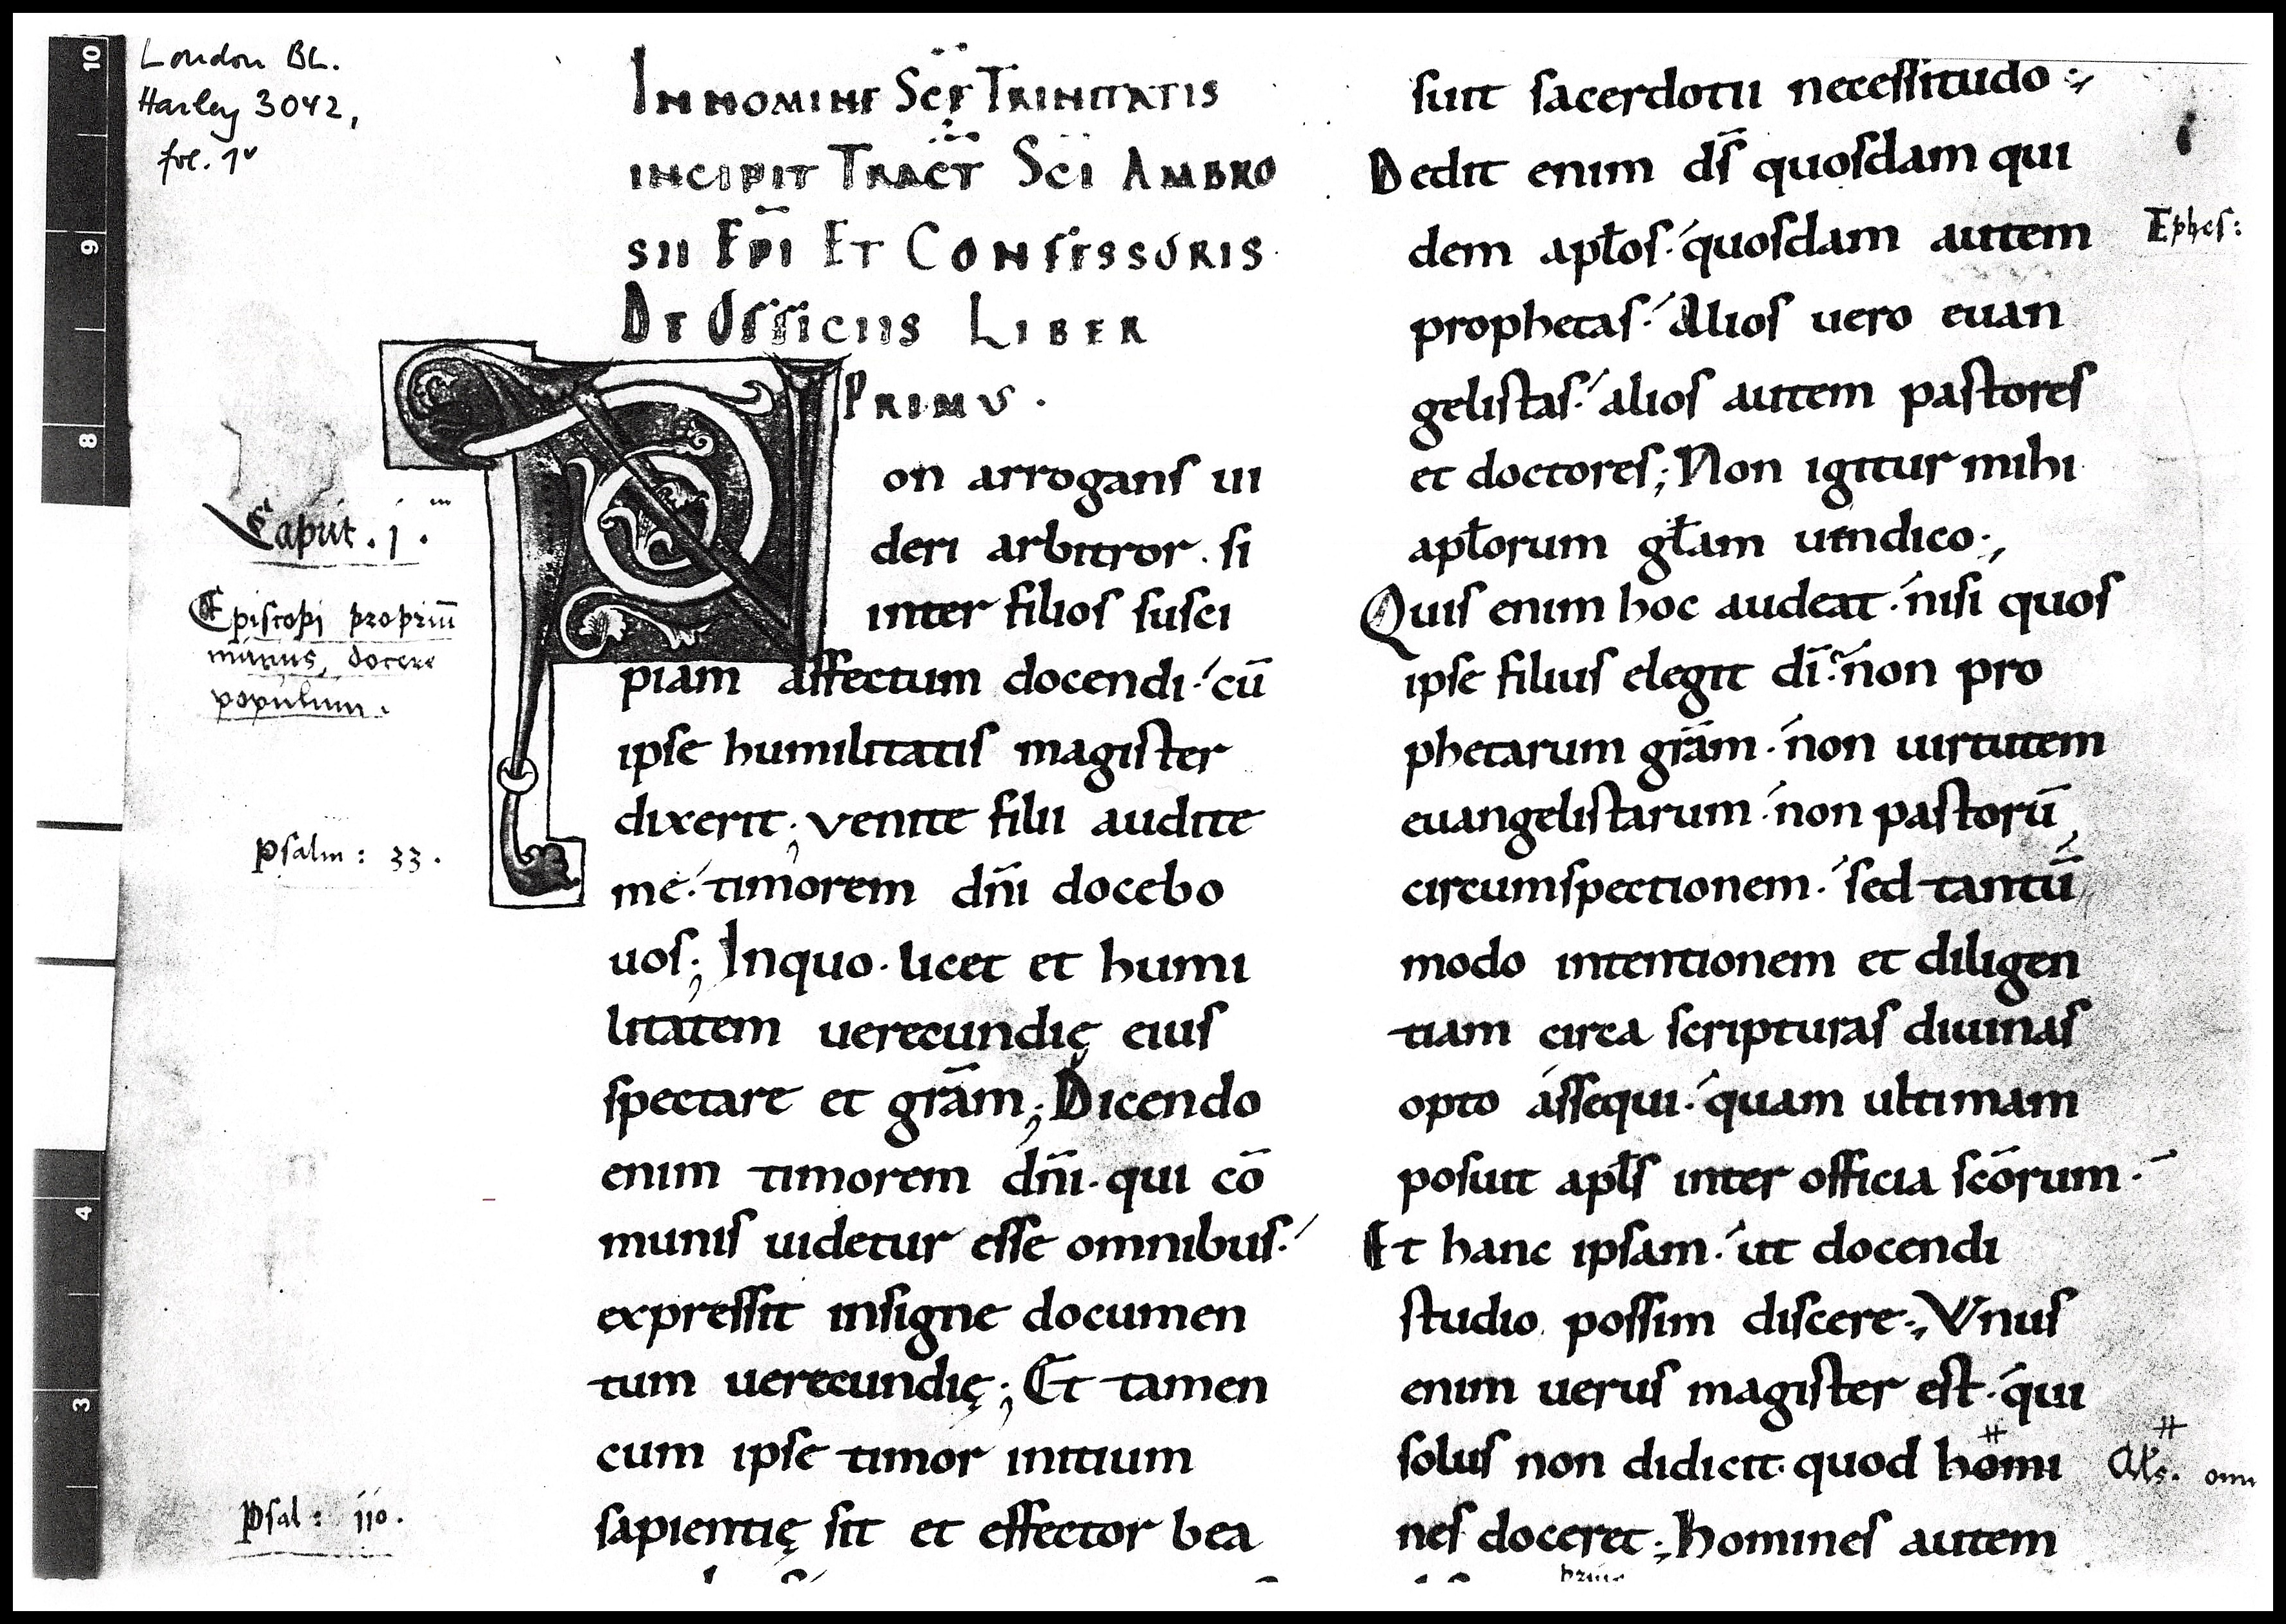 London BL.
Harley 3042,
fol. 1v
IN NOMINE SCE TRINITATIS
INCIPIT TRACT SCI AMBRO
SII EPI ET CONFESSORIS
DE OFFICIIS LIBER
PRIMUS.
Caput. j.
Episcopi propriū
munus, docere
populum.
Psalm: 33.
Psal: 110.
Non arrogans ui
deri arbitror. si
inter filios susci
piam affectum docendi. cū
ipse humilitatis magister
dixerit; venite filii audite
me. timorem dn̄i docebo
uos; Inquo. licet et humi
litatem uerecundię eius
spectare et grām; Dicendo
enim timorem dn̄i. qui cō
munis uidetur esse omnibus.
expressit insigne documen
tum uerecundię; Et tamen
cum ipse timor initium
sapientię sit et effector bea
suit sacerdotii necessitudo;
Dedit enim ds̄ quosdam qui
dem apłos. quosdam autem
prophetas. Alios uero euan
gelistas. alios autem pastores
et doctores; Non igitur mihi
apłorum głam uendico;
Quis enim hoc audeat. nisi quos
ipse filius elegit dī. non pro
phetarum grām. non uirtutem
euangelistarum. non pastorū
circumspectionem. sed tantū
modo intentionem et diligen
tiam circa scripturas diuinas
opto assequi. quam ultimam
posuit apłs inter officia scōrum.
Et hanc ipsam. ut docendi
studio possim discere; Vnus
enim uerus magister est. qui
solus non didicit. quod homi
nes doceret; Homines autem
Ephes:
Als. omn